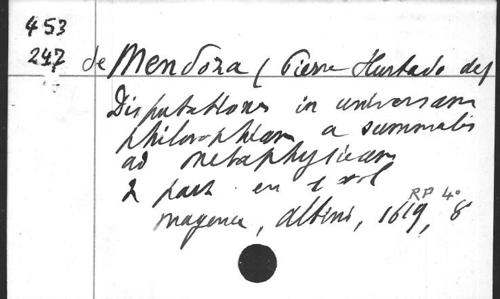 453
247
de Mendoza ( Pierre Hurtado de)
Disputationes in universam
philosophiam a summulis
ad metaphysicam
2 part. en 1 vol
RP 4°
mayence, Albini, 1619, 8